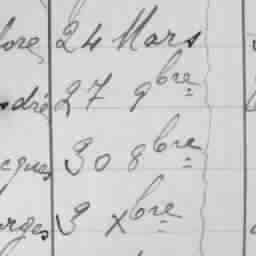 lore 24 Mars
ndré 27 9bre
cques 30 8bre
orges 3 Xbre